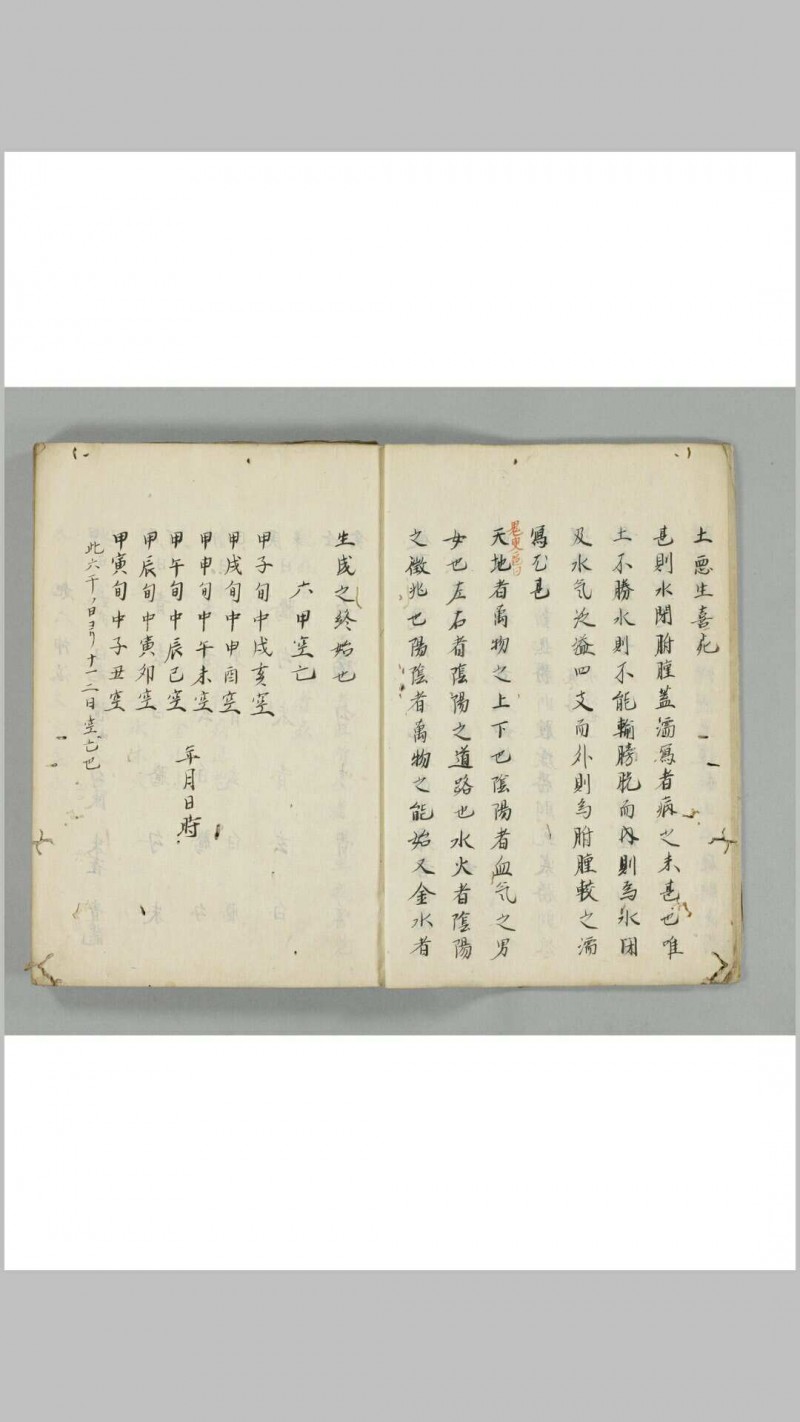 土悪生喜死
甚則水閉腑腫蓋濡寫者病之未甚也唯
土不勝水則不能輸膀胱而内則為水固
及水気泛溢四支而外則為腑腫較之濡
寫尤甚
天地者萬物之上下也陰陽者血气之男
女也左右者陰陽之道路也水火者陰陽
之徴兆也陽陰者萬物之能始又金水者
生成之終始也
六甲空亡
甲子旬中戌亥空
甲戌旬中申酉空
甲申旬中午未空
甲午旬中辰巳空
甲辰旬中寅卯空
甲寅旬中子丑空
此六干ノ日ヨリ十一二日空亡也
年月日時